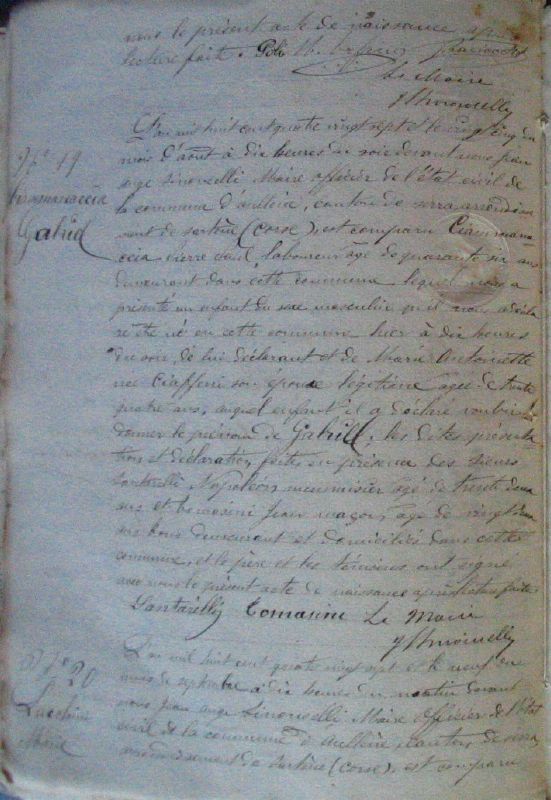 nous le présent acte de naissance après
lecture faite.
Le Maire
N° 19
Giammanaccia
Gabriel
L'an mil huit cent quatre vingt sept et le vingt cinq du
mois d'août à dix heures du soir devant nous jean
ange Sinonselli Maire officier de l'état civil de
la commune d'aullène, canton de serra arrondisse
ment de sartène (corse), est comparu Ciammana
ccia pierre paul laboureur âgé de quarante six ans
demeurant dans cette commune lequel nous a
présenté un enfant du sexe masculin qu'il nous a décla
ré être né en cette commune hier à dix heures
du soir, de lui déclarant et de Marie Antoinette
née Ciafferri son épouse légitime agée de trente
quatre ans, auquel enfant il a déclaré vouloir
donner le prénom de Gabriel. les dites présenta
tions et déclaration faites en présence des sieurs
Santarelli Napoléon menuisier âgé de trente deux
ans et tomasini jean maçon, âgé de vingt
ans tous demeurant et domiciliés dans cette
commune, et le père et les témoins ont signé
avec nous le présent acte de naissance après lecture faite.
Santarelli Tomasini Le Maire
N° 20
Lucchini
Marie
L'an mil huit cent quatre vingt sept et le neuf du
mois de septembre à dix heures du matin devant
nous jean ange Sinonselli Maire officier de l'état
civil de la commune d'aullène, canton de serra
arrondissement de sartène (corse), est comparu